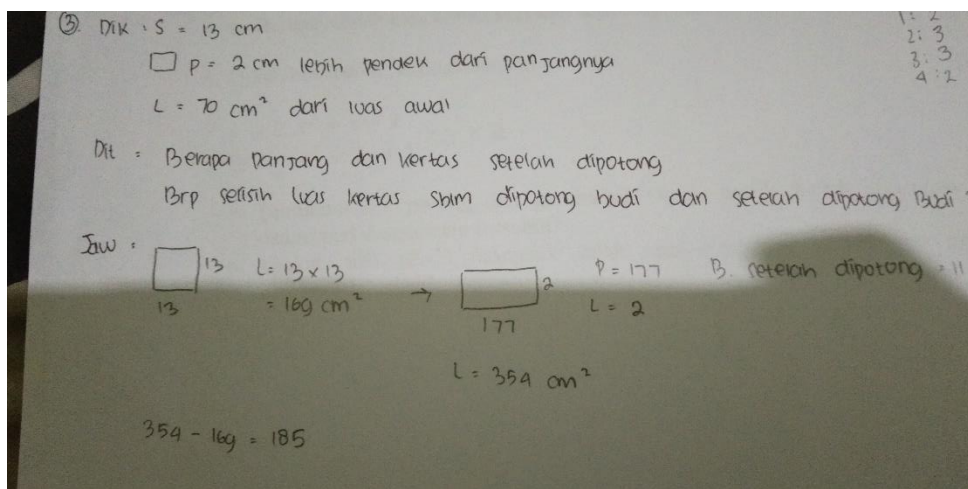 ③ Dik : S = 13 cm
□ p = 2 cm lebih pendek dari panjangnya
L = 70 cm² dari luas awal
Dit = Berapa panjang dan kertas setelah dipotong
Brp selisih luas kertas sblm dipotong budi dan setelah dipotong Budi
Jaw :
13
13
L = 13 x 13
= 169 cm²
→
2
177
P = 177
L = 2
B. setelah dipotong = 11
L = 354 cm²
354 - 169 = 185
1: 2
2: 3
3: 3
4: 2